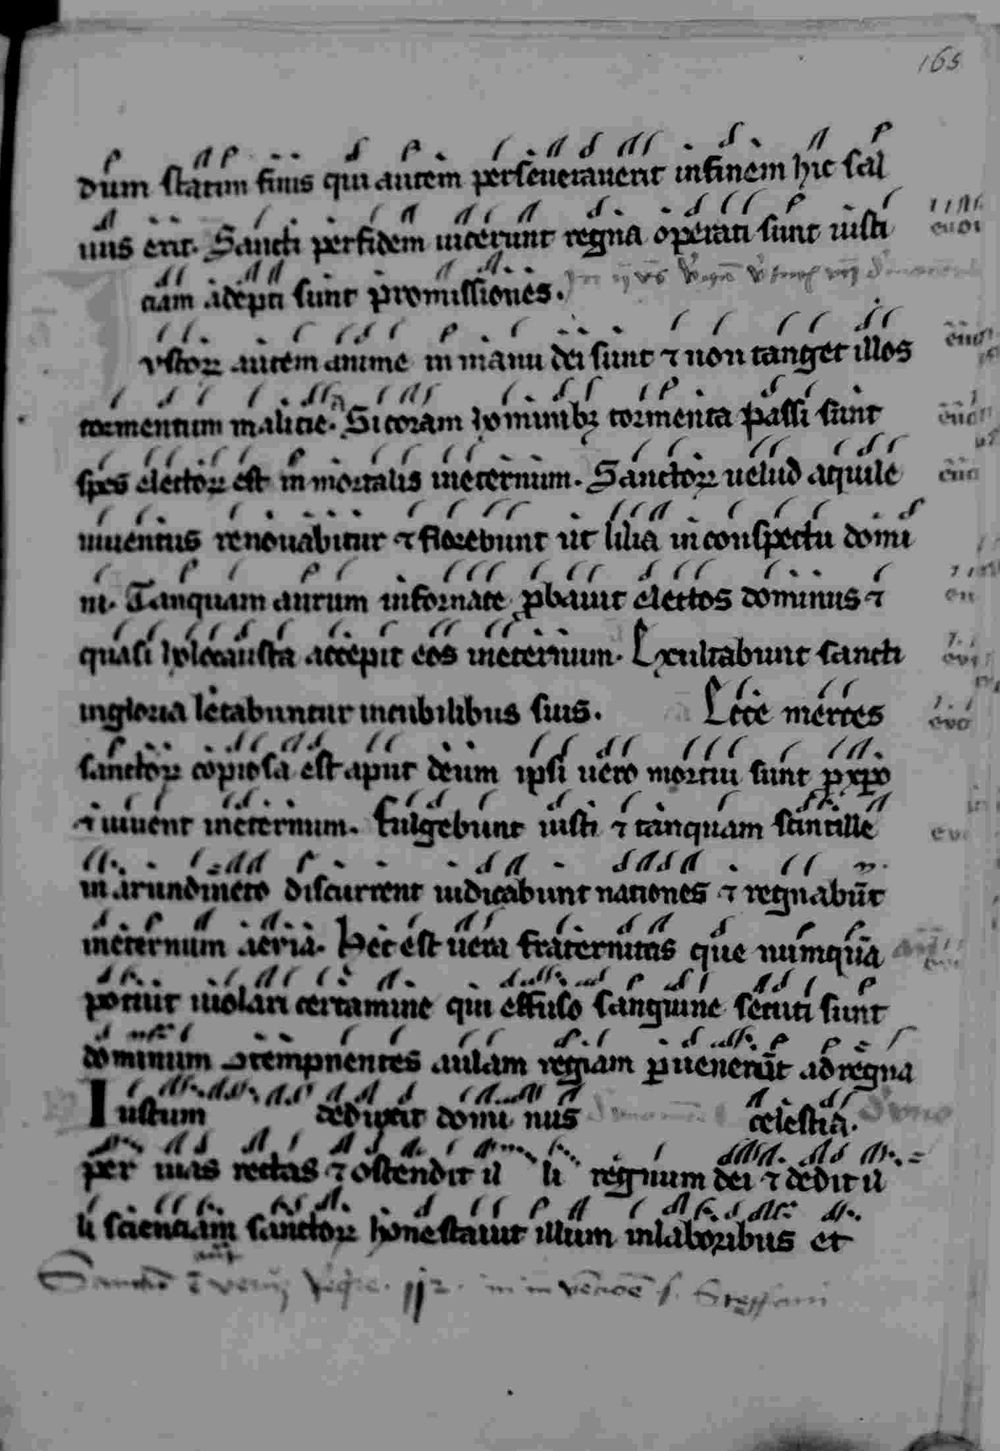 165
dum statim finis qui autem perseuerauerit infinem hic sal
uus erit. Sancti perfidem uicerunt regna operati sunt iusti
ciam adepti sunt promissiones.
ustoꝝ autem anime in manu dei sunt ⁊ non tanget illos
tormentum malicie. Si coram hominibꝫ tormenta passi sunt
spes electoꝝ est in mortalis ineternum. Sanctoꝝ uelud aquile
iuuentus renouabitur ⁊ florebunt ut lilia in conspectu domi
ni. Tanquam aurum infornace ꝓbauit electos dominus ⁊
quasi holocausta accepit eos ineternum. Exultabunt sancti
ingloria letabuntur incubilibus suis. Ecce merces
sanctoꝝ copiosa est aput deum ipsi uero mortui sunt ꝓ xpo
⁊ uiuent ineternum. Fulgebunt iusti ⁊ tanquam scintille
in arundineto discurrent iudicabunt nationes ⁊ regnabūt
ineternum aeuia. Hec est uera fraternitas que numquā
potuit uiolari certamine qui effuso sanguine secuti sunt
dominum ↄtempnentes aulam regiam ꝑuenerūt ad regna
Iustum deduxit domi nus celestia.
per uias rectas ⁊ ostendit il li regnum dei ⁊ dedit il
li scienciam sanctoꝝ honestauit illum inlaboribus et